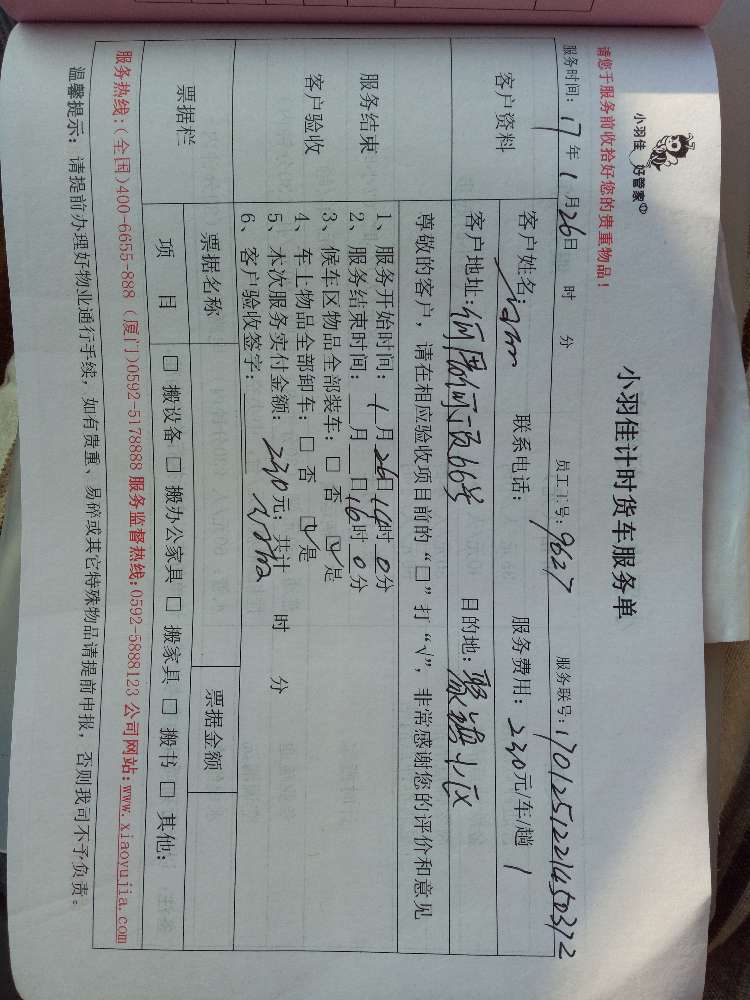 小羽佳 好管家
小羽佳计时货车服务单
请您于服务前收拾好您的贵重物品！
服务时间：17年1月26日 时 分 员工工号：9627 服务联号：1701251221450372
客户资料
客户姓名： 联系电话： 服务费用：230元/车/趟 1
客户地址：何厝何厝顶66号 目的地：小区
服务结束
客户验收
尊敬的客户，请在相应验收项目前的“□”打“√”，非常感谢您的评价和意见
1、服务开始时间：1月26日14时0分
2、服务结束时间： 月 日16时0分
3、候车区物品全部装车：□ 否 ☑是
4、车上物品全部卸车：□ 否 ☑是
5、本次服务实付金额：230元；共计 时 分
6、客户验收签字：
票据栏
票据名称 票据金额
项 目 □ 搬设备 □ 搬办公家具 □ 搬家具 □ 搬书 □ 其他：
服务热线：(全国)400-6655-888 (厦门)0592-5178888 服务监督热线：0592-5888123 公司网站：www.xiaoyujia.com
温馨提示：请提前办理好物业通行手续，如有贵重、易碎或其它特殊物品请提前申报，否则我司不予负责。